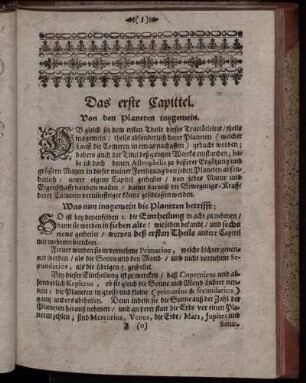 (1)
Das erste Capittel.
Von den Planeten ingemein.
OB gleich in dem ersten Theile dieses Tractätleins/ theils
ingemein/ theils absonderlich derer Planeten (welcher
auch die Cometen in etwas nachaffen) gedacht worden;
dahero auch der Titul des gantzen Wercks entstanden; ha-
be ich doch denen Astrophilis zu besserer Ergötzung und
grösserm Nutzen in dieser meiner Fortsetzung von jeden Planeten abson-
derlich/ unter eigene Capitel getheilet/ von jedes Natur und
Eigenschafft handeln wollen/ damit daraus die Bewegungs-Kraffte
derer Cometen vernünfftiger könne geschlossen werden.
Was nun ingemein die Planeten betrifft:
SO ist bey denenselben 1. die Eintheilung in acht zu nehmen/
denn sie werden in sieben alte/ wie jeden bekandt/ und sechs
neue getheilet/ wovon deß ersten Theils ander Capitel
mit mehrern berichtet.
Ferner werden sie in vornehme Primarios, welche bißher genen-
net worden/ als die Sonne und den Mond/ und nicht vornehme Se-
cundarios, als die übrigen 5. getheilet.
Bey dieser Eintheilung ist zu mercken/ daß Copernicus und ab-
sonderlich Keplerus, ob sie gleich die Sonne und Mond äuserst nen-
nen/ die Planeten in grosse und kleine (primarios & secundarios)
gantz anders abtheilen. Denn indem sie die Sonne aus der Zahl der
Planeten heraus nehmen/ und an derer statt die Erde vor einen Pla-
neten zehlen; sind Mercurius, Venus, die Erde/ Mars, Jupiter und
A (o)
Satur-